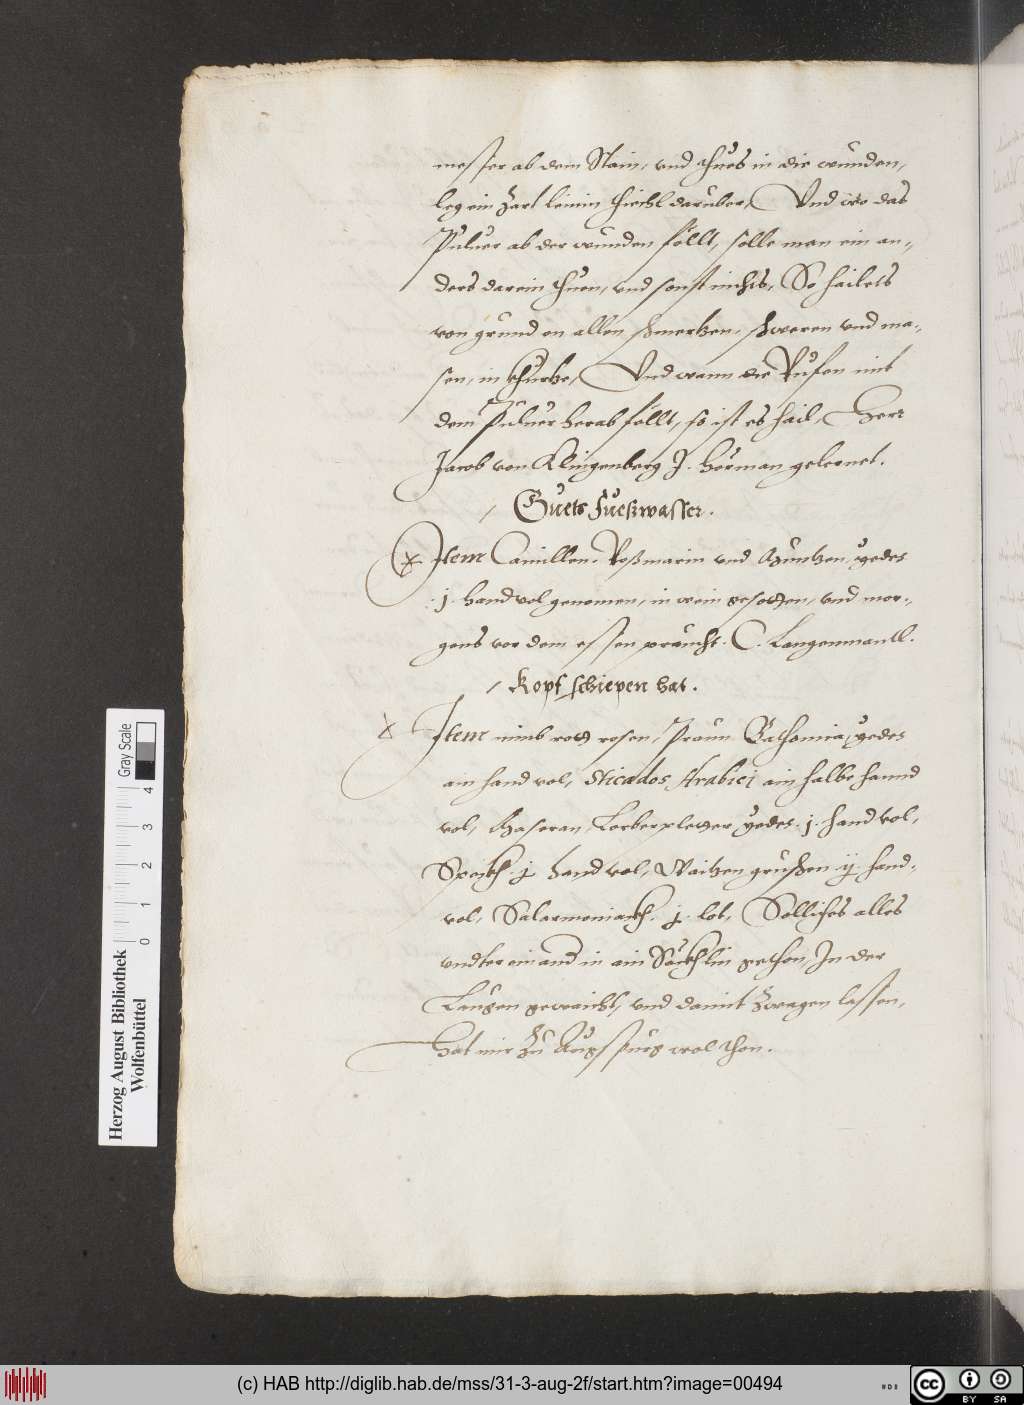 messer ab dem Stain, vnd thues in die wunden,
leg ein zart leinin tiechl darüber, Vnd wo das
Puluer ab der wunden föllt, solle man ein an-
ders darein thuen, vnd sonst nichts, So hailets
von grund on allen schmertzen, schweren vnd ma-
sen, in khurtze, Vnd wann die Rufen mit
dem Puluer herab föllt, so ist es hail, Herr
Jacob von Klingenberg J. Herman gelernet.
Guets Fueßwasser.
Item Camillen, Roßmarin vnd yedes
.j. hand vol genomen, in wein gesotten, vnd mor-
gens vor dem essen praucht. C. Langenmantl.
Kopf schiepen hat.
Item nimb rott rosen, Praun Bathonia, yedes
ain hand vol, Sticados Arabici ain halbe hannd
vol, Maseran, Lorberpletter yedes .j. hand vol,
Speickh .j. hand vol, Waitzen grüschen ij. hand-
vol, Salarmoniackh .j. lot, Solliches alles
vndter einand in ain Säckhlin gethon, In der
Laugen gewaicht, vnd damit zwagen lassen,
Hat mir zu Augspurg wol thon.
Herzog August Bibliothek
Wolfenbüttel
Gray Scale
0 1 2 3 4
(c) HAB http://diglib.hab.de/mss/31-3-aug-2f/start.htm?image=00494
cc BY SA